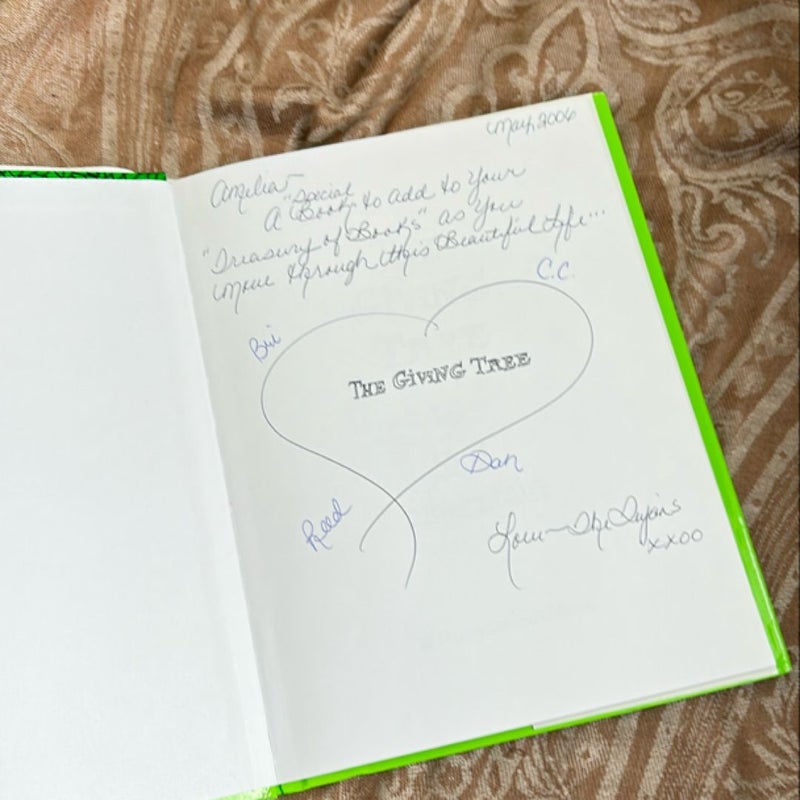 May, 2006
Amelia -
A "Special
Book" to add to Your
"Treasury of Books" as You
move through this Beautiful Life...
C.C.
Bri
THE GIVING TREE
Dan
Reed
Love - The
xxoo